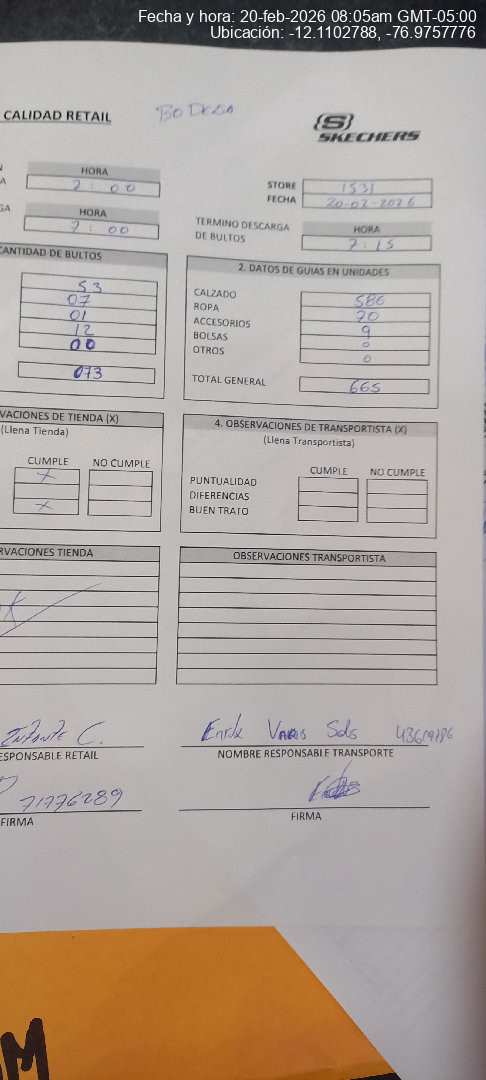 Fecha y hora: 20-feb-2026 08:05am GMT-05:00
Ubicación: -12.1102788, -76.9757776
CALIDAD RETAIL
BODEGA
SKECHERS
HORA
7:00
STORE 1531
FECHA 20-02-2026
HORA
7:00
TERMINO DESCARGA DE BULTOS
HORA
7:15
CANTIDAD DE BULTOS
53
07
01
12
00
073
2. DATOS DE GUIAS EN UNIDADES
CALZADO 586
ROPA 70
ACCESORIOS 9
BOLSAS 0
OTROS 0
TOTAL GENERAL 665
VACIONES DE TIENDA (X)
(Llena Tienda)
CUMPLE NO CUMPLE
X
X
4. OBSERVACIONES DE TRANSPORTISTA (X)
(Llena Transportista)
CUMPLE NO CUMPLE
PUNTUALIDAD
DIFERENCIAS
BUEN TRATO
RVACIONES TIENDA
OBSERVACIONES TRANSPORTISTA
Infante C.
ESPONSABLE RETAIL
71776289
FIRMA
NOMBRE RESPONSABLE TRANSPORTE
FIRMA
M